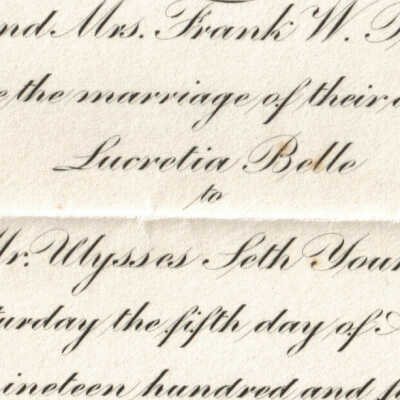 nd Mrs. Frank W.
the marriage of their
Lucretia Belle
to
Mr. Ulysses Seth Youn
turday the fifth day of
nineteen hundred and f